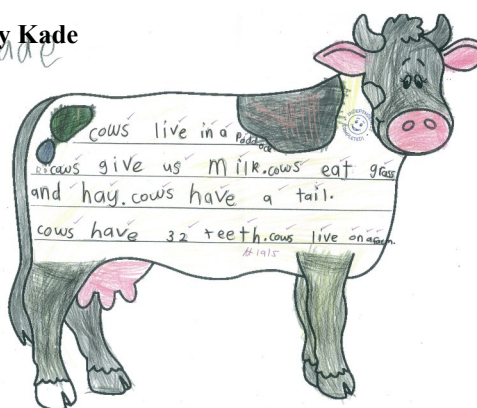 y Kade
ade
cows live in a Paddock
caws give us milk.cows eat grass
and hay.cows have a tail.
cows have 32 teeth.cows live on a farm.